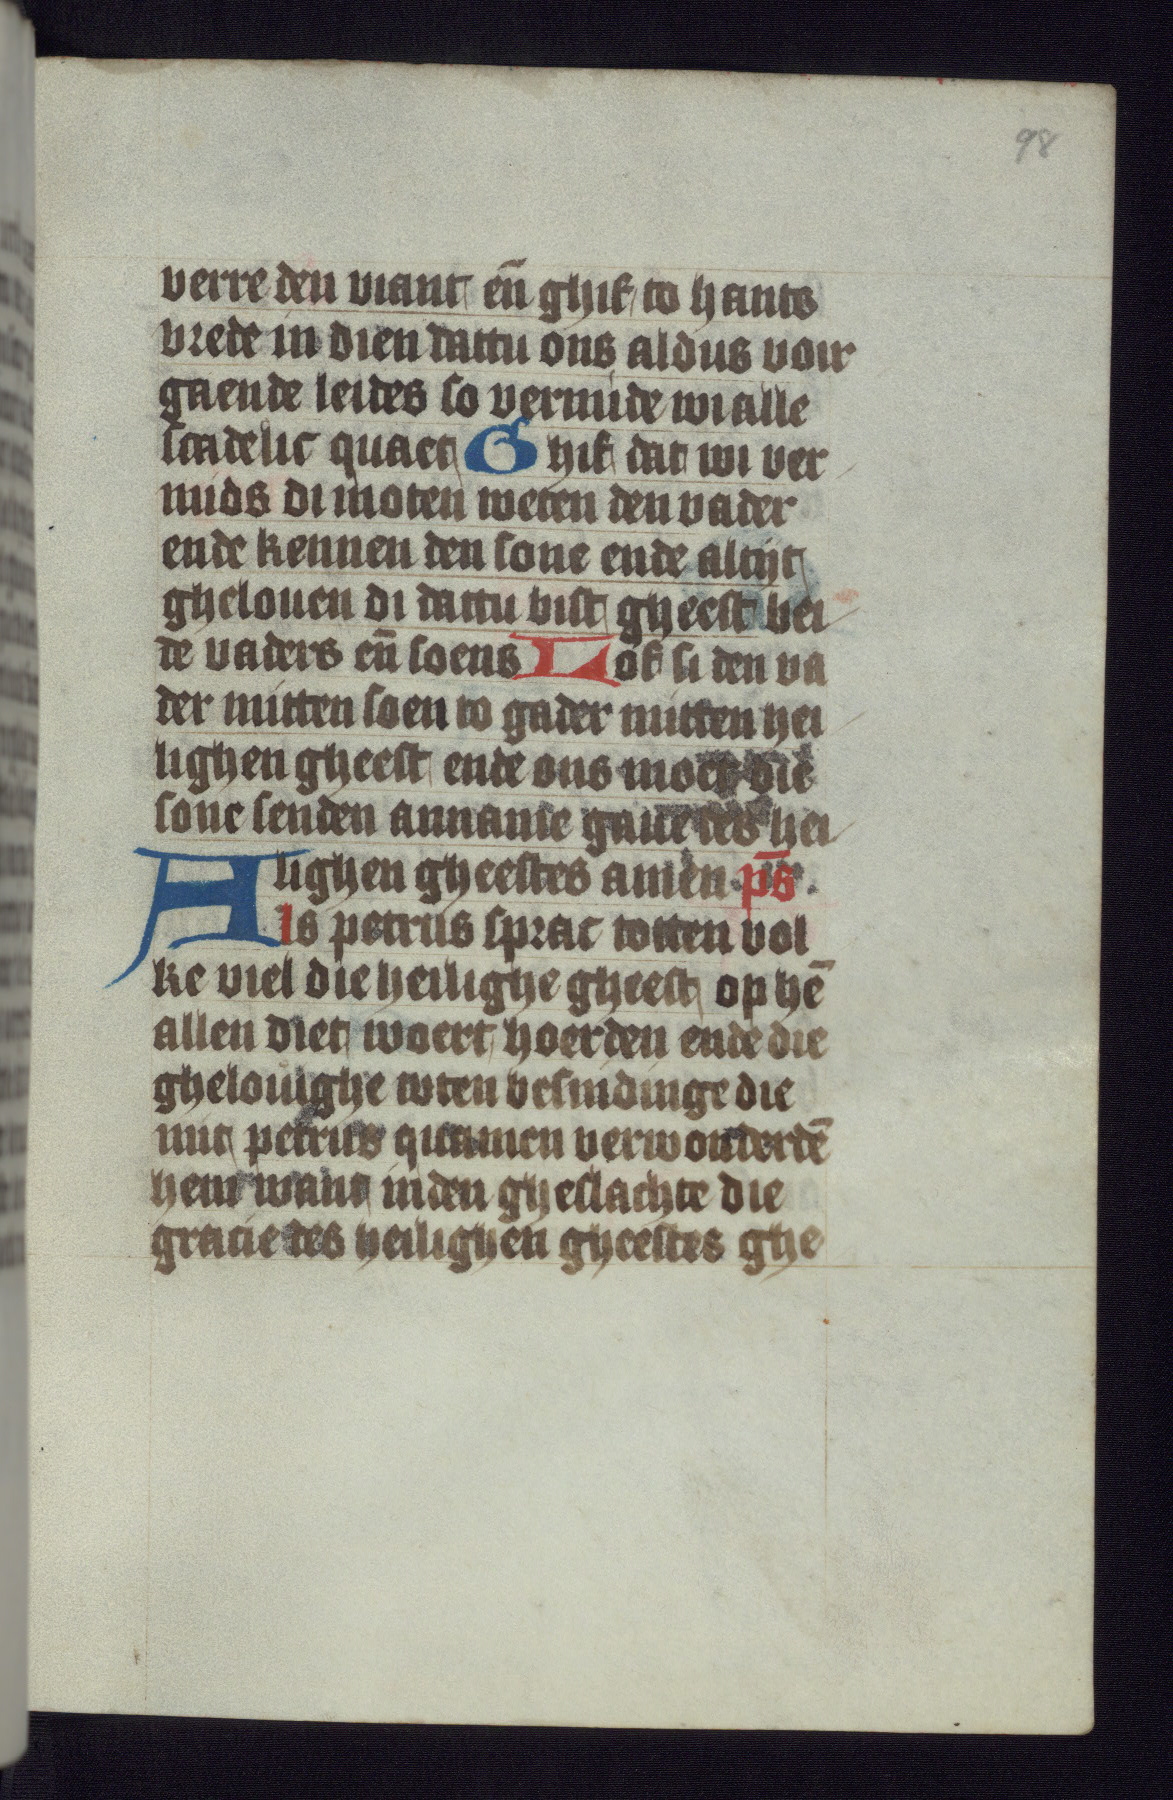 98
verre den viant en̄ ghif to hants
vrede in dien dattu ons aldus voir
gaende leides so vermide wi alle
scadelic quaet Ghif dat wi ver
mids di moten weten den vader
ende kennen den sone ende altijt
ghelouen di dattu bist gheest bei
de vaders en̄ soens Lof si den va
der mitten soen to gader mitten hei
lighen gheest ende ons moet die
sone senden an name gaue des hei
lighen gheestes amen. ps̄
Als petrus sprac totten vol
ke viel die heilighe gheest op hē
allen diet woert hoerden ende die
ghelouighe wten besnidinge die
mit petrus quamen verwonderdē
hem want inden gheslachte die
gracie des heilighen gheestes ghe